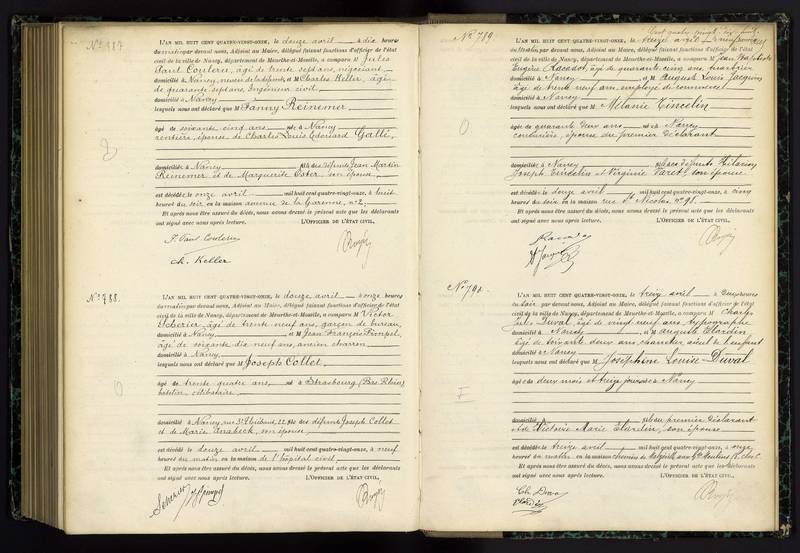 N° 787
L'AN MIL HUIT CENT QUATRE-VINGT-ONZE, le douze avril à dix heures
du matin par devant nous, Adjoint au Maire, délégué faisant fonctions d'officier de l'état
civil de la ville de Nancy, département de Meurthe-et-Moselle, a comparu M Jules
Paul Couleru, âgé de trente sept ans, négociant
domicilié à Nancy, neveu de la défunte, et M Charles Keller, âgé
de quarante sept ans, Ingénieur civil
domicilié à Nancy
lesquels nous ont déclaré que M Fanny Reinemer
âgée de soixante cinq ans née à Nancy
rentière, épouse de Charles Louis Edouard Gallé,
domiciliée à Nancy fille des défunts Jean Martin
Reinemer et de Marguerite Oster, son épouse
est décédée le onze avril mil huit cent quatre-vingt-onze, à huit
heures du soir en la maison avenue de la Garenne, n° 2,
Et après nous être assuré du décès, nous avons dressé le présent acte que les déclarants
ont signé avec nous après lecture. L'OFFICIER DE L'ÉTAT CIVIL,
J. Paul Couleru
Ch. Keller
N° 788.
L'AN MIL HUIT CENT QUATRE-VINGT-ONZE, le douze avril à onze heures
du matin par devant nous, Adjoint au Maire, délégué faisant fonctions d'officier de l'état
civil de la ville de Nancy, département de Meurthe-et-Moselle, a comparu M Victor
Scherier, âgé de trente neuf ans, garçon de bureau,
domicilié à Nancy et M Jean François
âgé de soixante dix neuf ans, ancien charron
domicilié à Nancy,
lesquels nous ont déclaré que M Joseph Collet
âgé de trente quatre ans, né à Strasbourg (Bas Rhin)
célibataire
domicilié à Nancy, rue St 22, fils des défunts Joseph Collet
et de Marie son épouse
est décédé le douze avril mil huit cent quatre-vingt-onze, à neuf
heures du matin en la maison de l'hôpital civil
Et après nous être assuré du décès, nous avons dressé le présent acte que les déclarants
ont signé avec nous après lecture. L'OFFICIER DE L'ÉTAT CIVIL,
Scherier
N° 789
L'AN MIL HUIT CENT QUATRE-VINGT-ONZE, le treize avril à neuf heures
du matin par devant nous, Adjoint au Maire, délégué faisant fonctions d'officier de l'état
civil de la ville de Nancy, département de Meurthe-et-Moselle, a comparu M Jean Baptiste
âgé de quarante cinq ans
domicilié à Nancy et M August Louis Jacquin
âgé de trente neuf ans, employé de commerce
domicilié à Nancy
lesquels nous ont déclaré que M Mélanie Vincelin
âgée de quarante deux ans née à Nancy
couturière, épouse du premier déclarant
domiciliée à Nancy fille des défunts Hilarion
Joseph Vincelin et Virginie Varet, son épouse
est décédée le douze avril mil huit cent quatre-vingt-onze, à cinq
heures du soir en la maison rue St Nicolas, n° 98.
Et après nous être assuré du décès, nous avons dressé le présent acte que les déclarants
ont signé avec nous après lecture. L'OFFICIER DE L'ÉTAT CIVIL,
N° 790.
L'AN MIL HUIT CENT QUATRE-VINGT-ONZE, le treize avril à deux heures
du soir par devant nous, Adjoint au Maire, délégué faisant fonctions d'officier de l'état
civil de la ville de Nancy, département de Meurthe-et-Moselle, a comparu M Charles
Duval, âgé de vingt neuf ans typographe
domicilié à Nancy, et M Auguste
âgé de soixante deux ans, aïeul de l'enfant
domicilié à Nancy
lesquels nous ont déclaré que M Joséphine Louise Duval
âgée de deux mois et treize jours née à Nancy
domiciliée à fille du premier déclarant
et de Victorine Marie son épouse
est décédée le treize avril mil huit cent quatre-vingt-onze, à onze
heures du matin en la maison
Et après nous être assuré du décès, nous avons dressé le présent acte que les déclarants
ont signé avec nous après lecture. L'OFFICIER DE L'ÉTAT CIVIL,